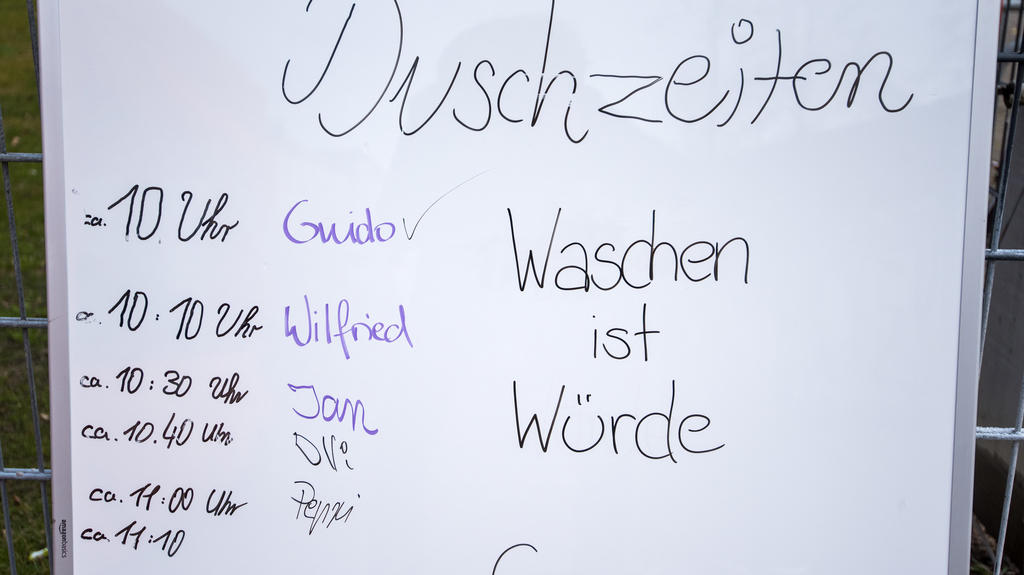 Duschzeiten
ca. 10 Uhr Guido ✓
ca. 10:10 Uhr Wilfried
ca. 10:30 Uhr Jan
ca. 10.40 Uhr
ca. 11:00 Uhr
ca. 11:10
Waschen
ist
Würde
amazonbasics